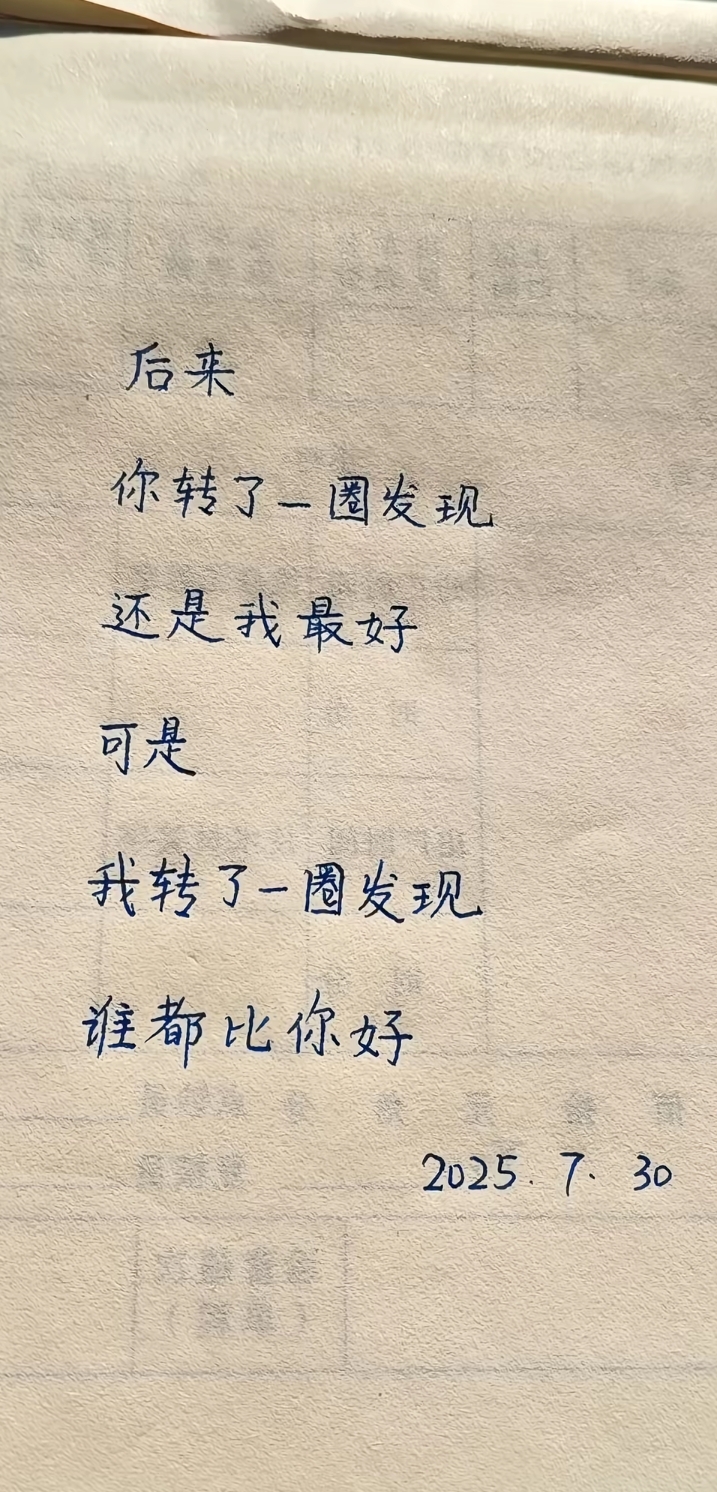 后来
你转了一圈发现
还是我最好
可是
我转了一圈发现
谁都比你好
2025.7.30